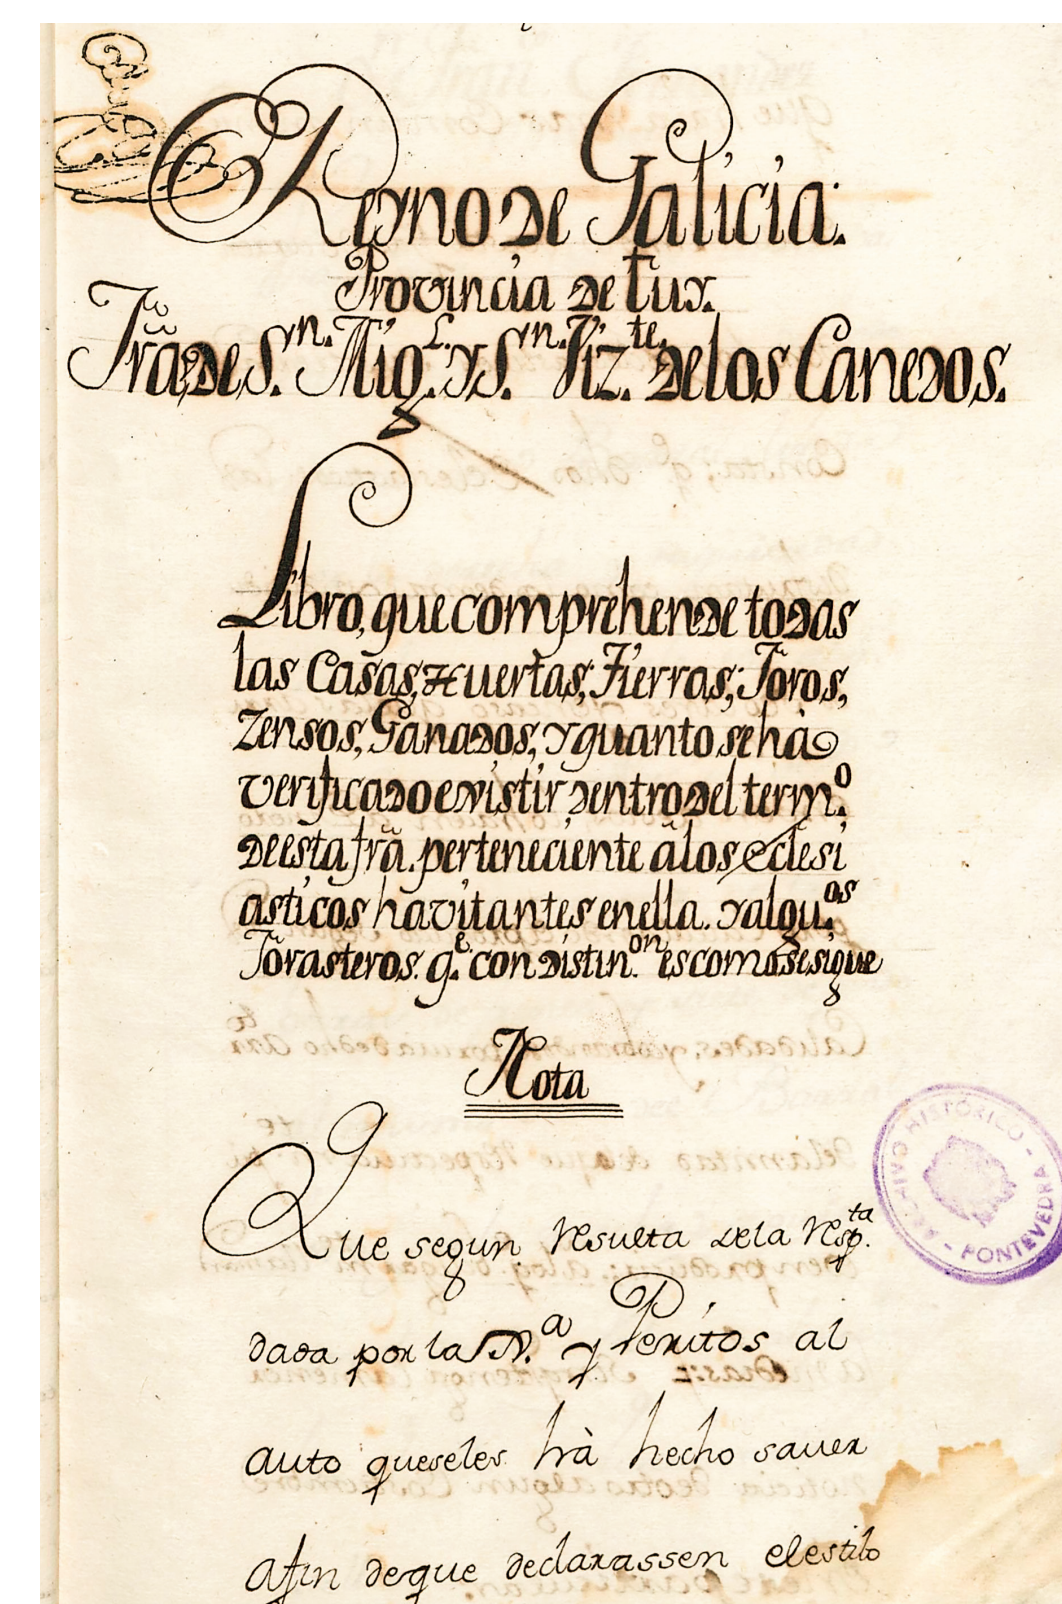 Reyno de Galicia.
Provincia de tux.
frã de S.n Mig.l y S.n Viz.te de los Canedos.
Libro, que comprehende todas
las Casas, Huertas, Tierras, Foros,
Zensos, Ganados, y quanto se hà
verificado existir dentro del term.o
de esta frã. perteneciente â los eclesi
asticos havitantes en ella. y algu.os
forasteros. q.e con distin.on es como se sigue
Nota
Que segun resulta dela resp.ta
dada por la J.a y Peritos al
auto que seles hà hecho saver
afin de que declarassen el estilo
ARCHIVO HISTÓRICO - PONTEVEDRA -